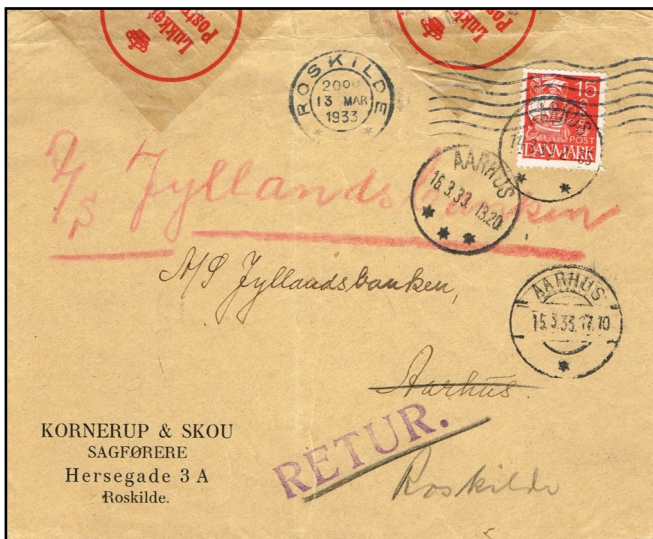 Lukket
Post
Lukket
Post
ROSKILDE
20⁰⁰
13 MAR
1933
15
POST
DANMARK
AARHUS
16.3.33. 13.20
A/S Jyllandsbanken
A/S Jyllandsbanken,
AARHUS
15.3.33. 17.10
Aarhus.
KORNERUP & SKOU
SAGFØRERE
Hersegade 3 A
Roskilde.
RETUR.
Roskilde